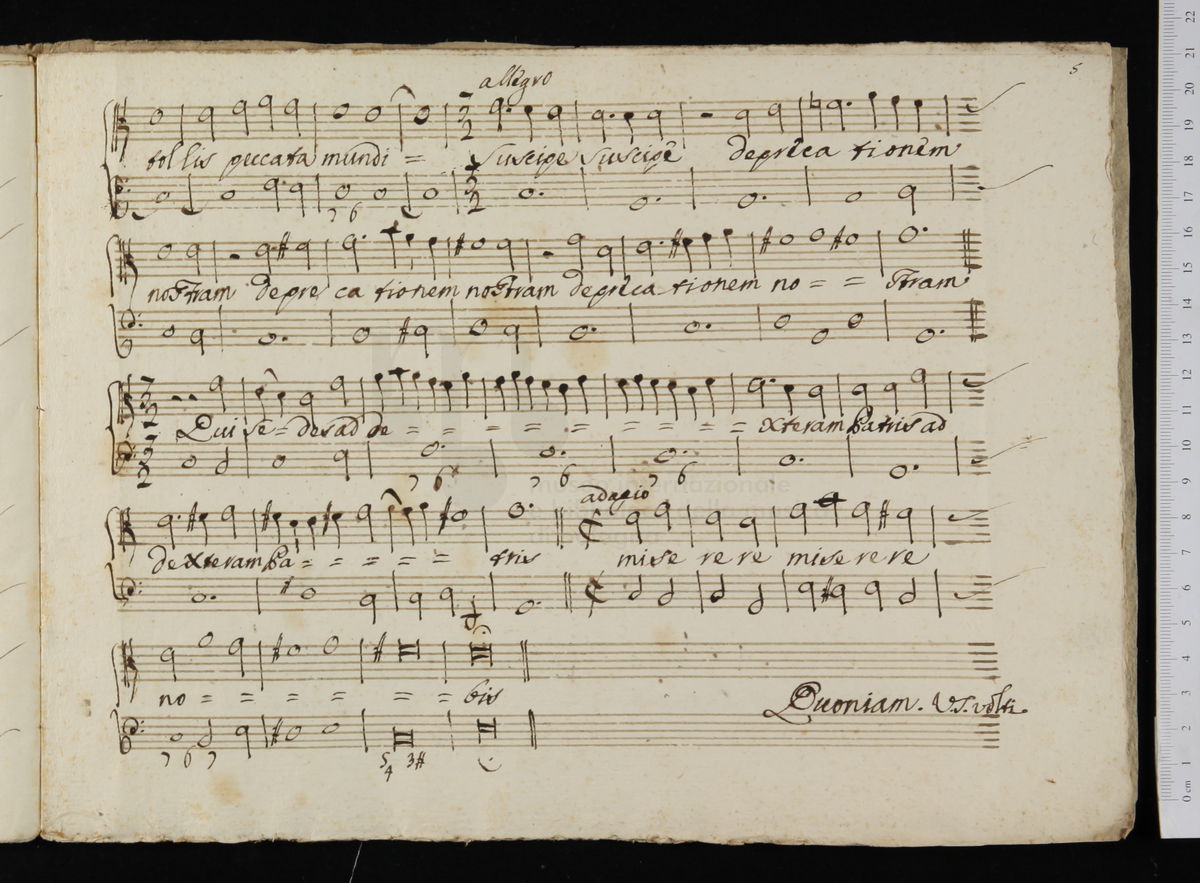 5
allegro
tollis peccata mundi = Suscipe Suscipe depreca tionem
7 6
nostram depre ca tionem nostram depreca tionem no = = stram
Qui se = des ad de = = = = = = = = xteram Patris ad
7 6 7 6 7 6
adagio
dexteram Pa = = = = = tris mise re re mise re re
no = = = = = = bis
Quoniam. VS. volti.
7 6 7 5 4 3#
museo internazionale
22 21 20 19 18 17 16 15 14 13 12 11 10 9 8 7 6 5 4 3 2 1 0 cm